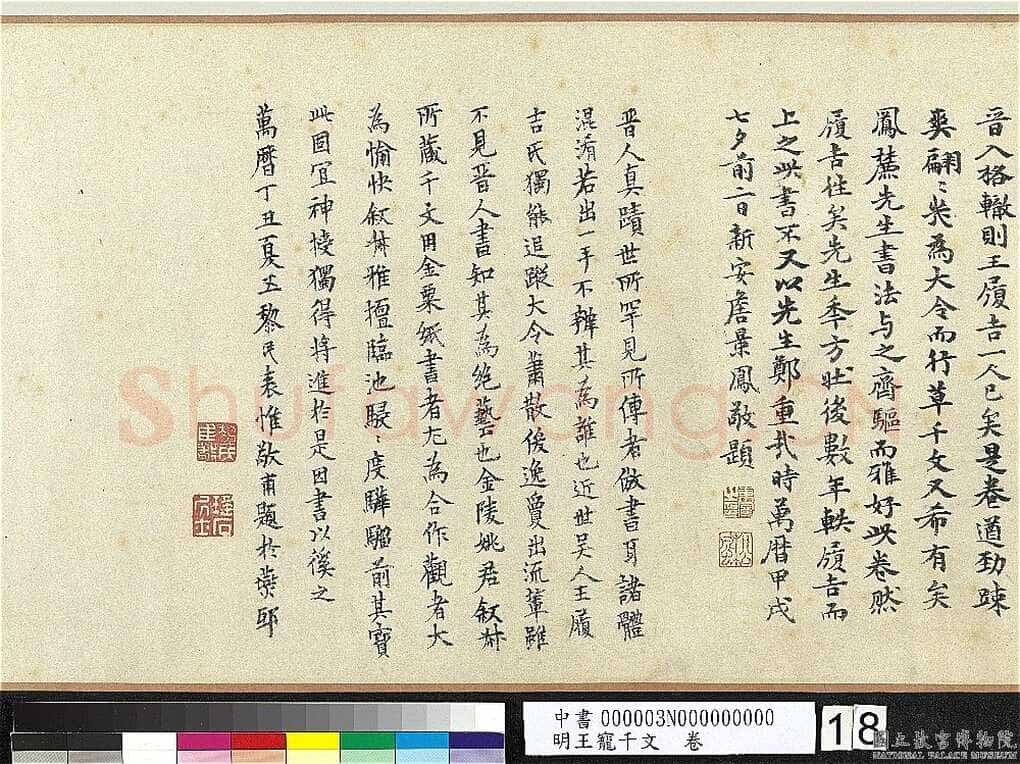 晉入格轍則王履吉一人已矣是卷遒勁踈
爽翩〻柴為大令而行草千文又希有矣
鳳麓先生書法与之齊驅而雅好此卷然
履吉往矣先生季方壯後數年軼履吉而
上之此書不又以先生鄭重哉時萬曆甲戌
七夕前二日新安詹景鳳敬題
晉人真蹟世所罕見所傳者倣書耳諸體
混淆若出一手不辯其為誰也近世吴人王履
吉氏獨能追蹤大令蕭散俊逸敻出流輩雖
不見晉人書知其為絶藝也金陵姚君叙
所藏千文用金粟紙書者尤為合作觀者大
為愉快叙雅擅臨池駸〻度驊騮前其寳
此固宜神棲獨得將進於是因書以徯之
萬曆丁丑夏五黎民表惟敬甫題於燕邸
Shufawang.CN
中書 000003N000000000
明王寵千文 卷
18
國立故宮博物院
NATIONAL PALACE MUSEUM